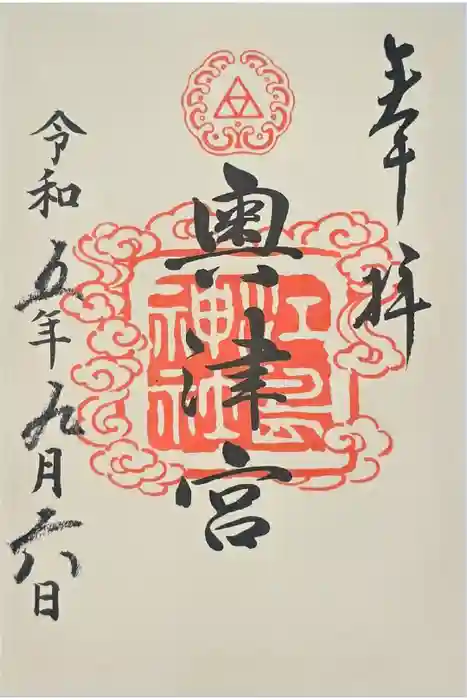 奉拝
奥津宮
江島
神社
令和五年九月六日